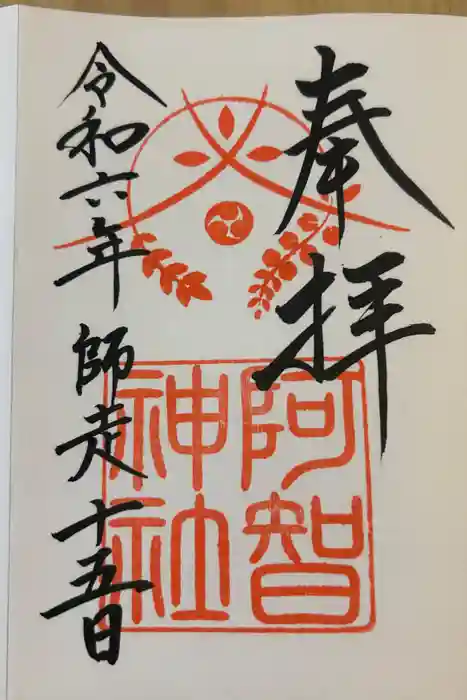 奉拝
阿智
神社
令和六年 師走 十五日